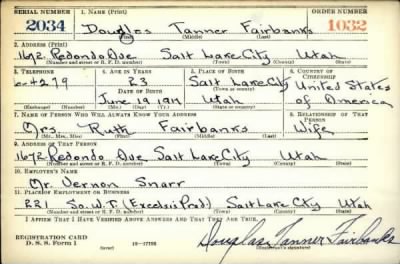 SERIAL NUMBER 1. NAME (Print) ORDER NUMBER
2034 Douglas Tanner Fairbanks 1032
(First) (Middle) (Last)
2. ADDRESS (Print)
1672 Redondo Ave Salt Lake City Utah
(Number and street or R. F. D. number) (Town) (County) (State)
3. TELEPHONE 4. AGE IN YEARS 5. PLACE OF BIRTH 6. COUNTRY OF CITIZENSHIP
6-4279 23 Salt Lake City United States
DATE OF BIRTH (Town or county)
June 19 1917 Utah of America
(Exchange) (Number) (Mo.) (Day) (Yr.) (State or country)
7. NAME OF PERSON WHO WILL ALWAYS KNOW YOUR ADDRESS 8. RELATIONSHIP OF THAT PERSON
Mrs Ruth Fairbanks Wife
(Mr., Mrs., Miss) (First) (Middle) (Last)
9. ADDRESS OF THAT PERSON
1672 Redondo Ave Salt Lake City Utah
(Number and street or R. F. D. number) (Town) (County) (State)
10. EMPLOYER'S NAME
Mr. Vernon Snarr
11. PLACE OF EMPLOYMENT OR BUSINESS
221 So. W. T. (Excelsis Prod.) Salt Lake City Utah
(Number and street or R. F. D. number) (Town) (County) (State)
I AFFIRM THAT I HAVE VERIFIED ABOVE ANSWERS AND THAT THEY ARE TRUE.
REGISTRATION CARD
D. S. S. Form 1 16-17105 Douglas Tanner Fairbanks